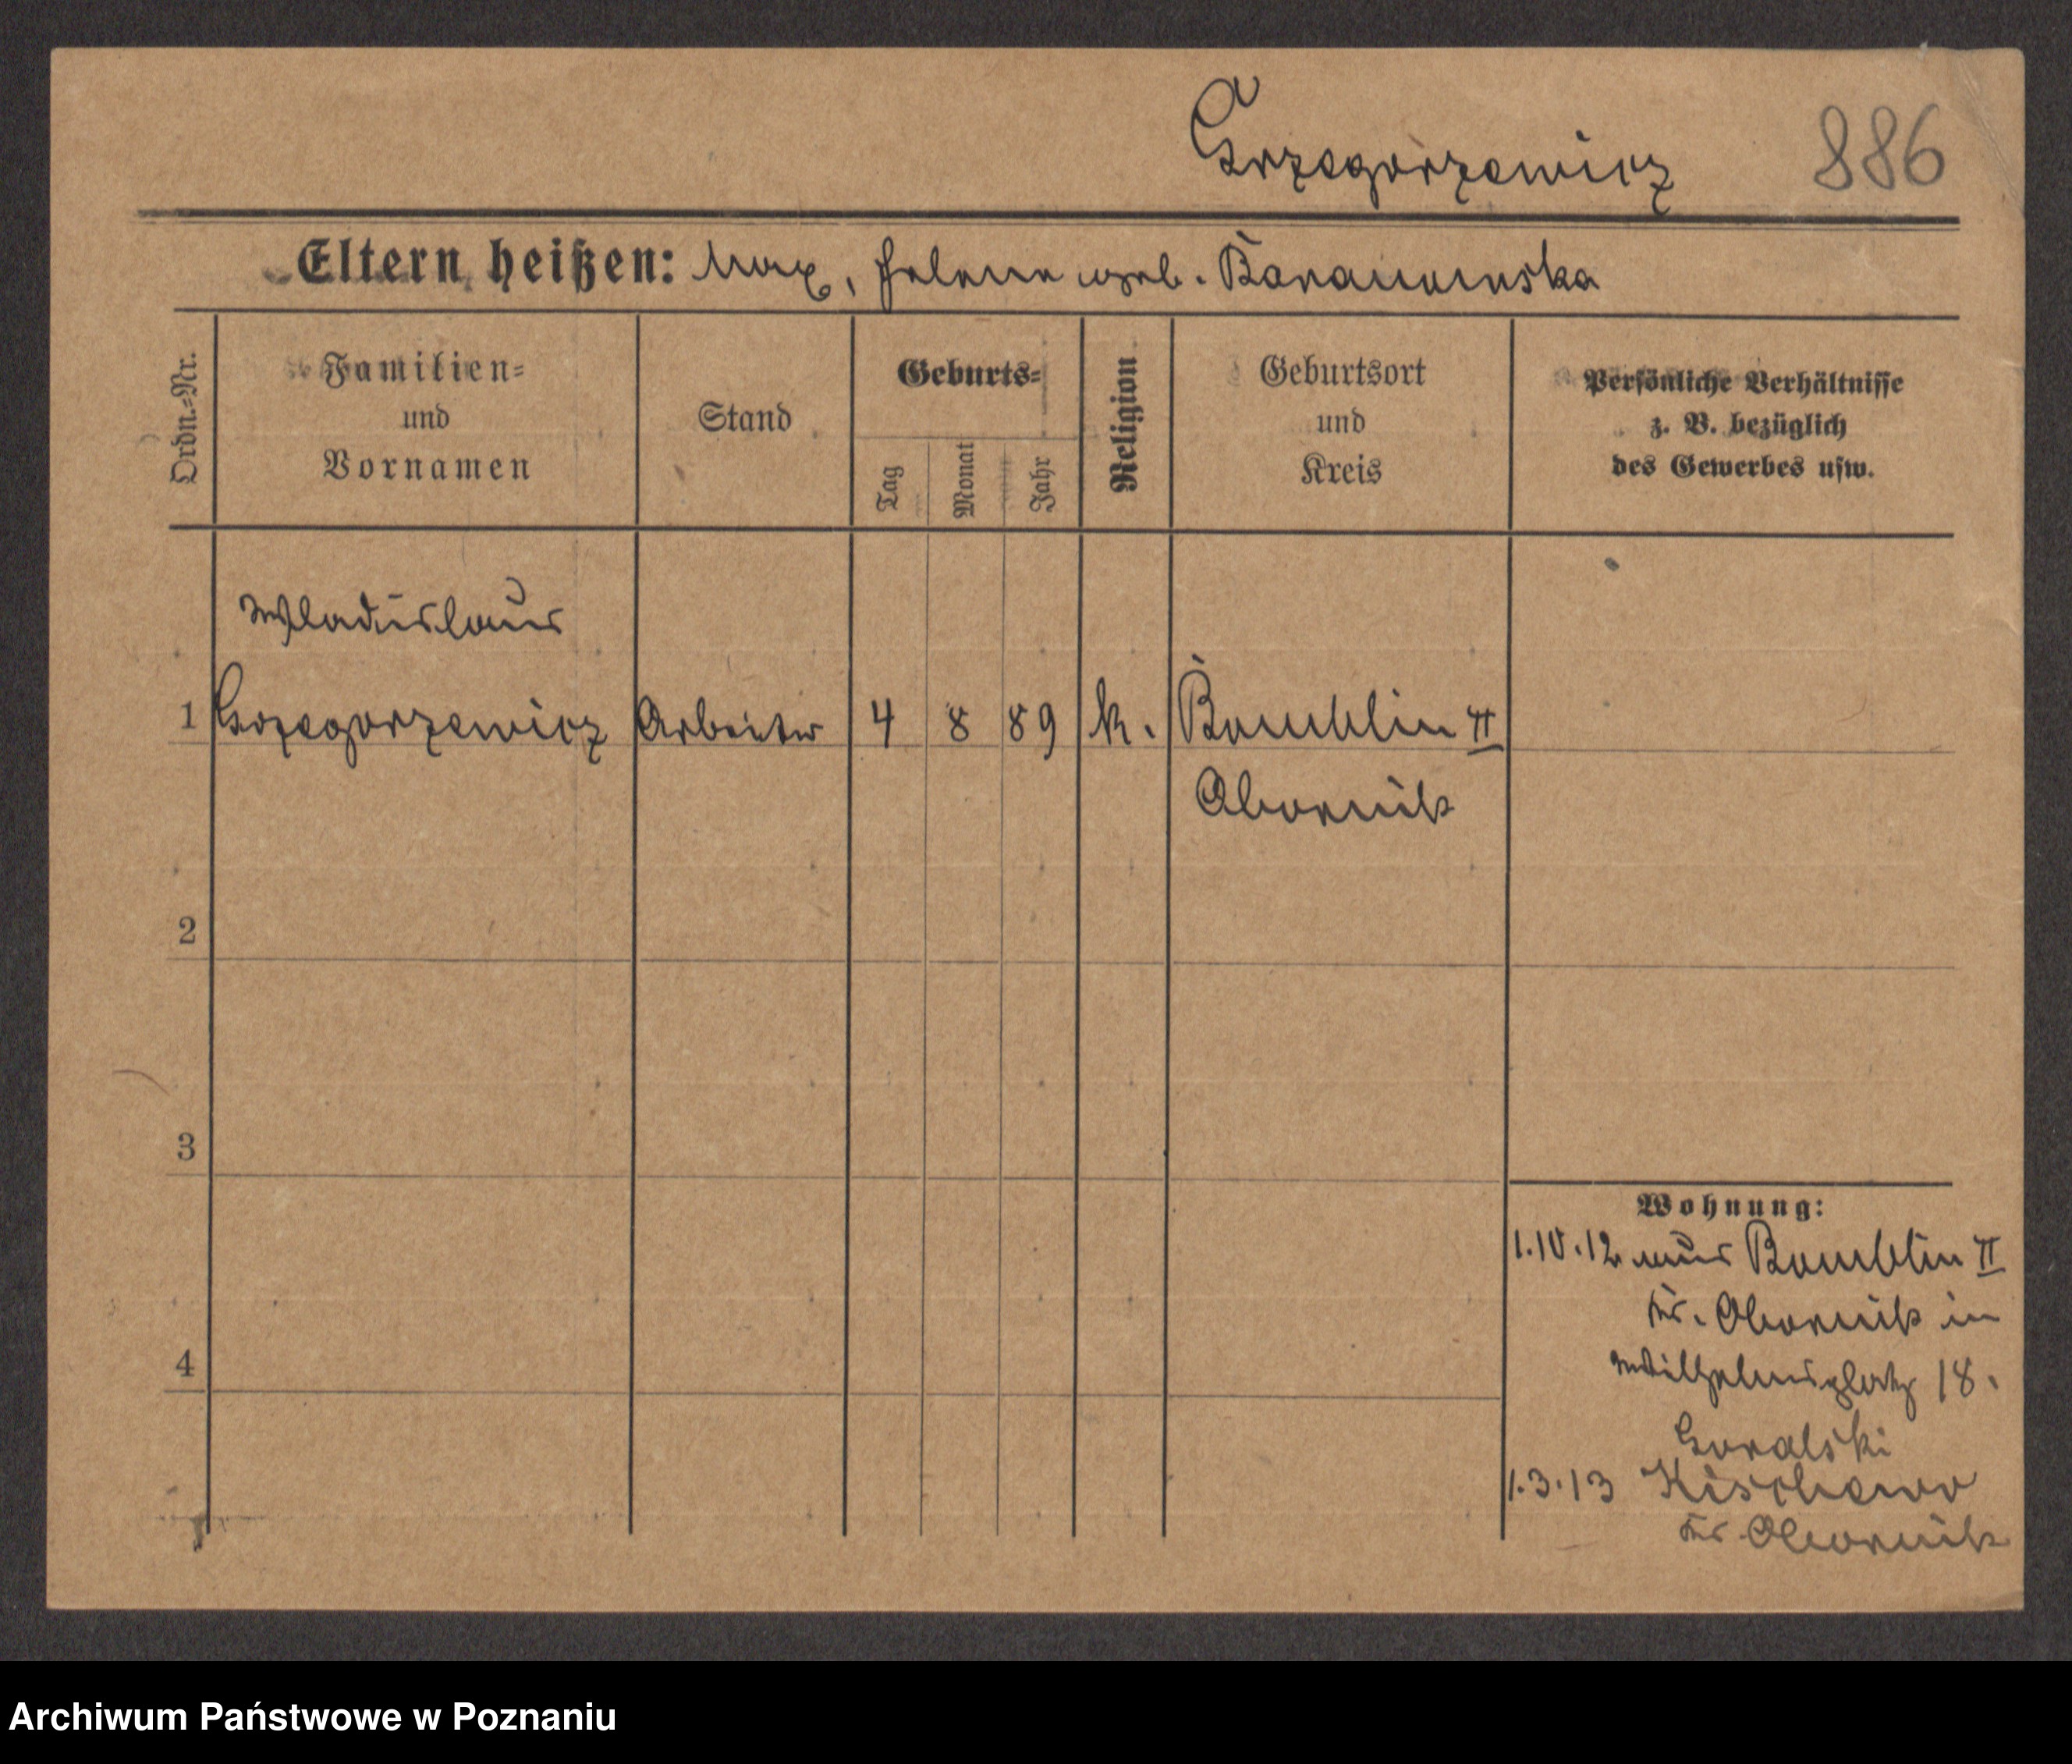 Grzegorzewicz 886
Eltern heißen: Max, Helene geb. Baranowska
Ordn.-Nr.
Familien-
und
Vornamen
Stand
Geburts-
Tag
Monat
Jahr
Religion
Geburtsort
und
Kreis
Persönliche Verhältnisse
z. B. bezüglich
des Gewerbes usw.
Wladislaus
1 Grzegorzewicz Arbeiter 4 8 89 k. Bomblin II
Obornik
2
3
4
Wohnung:
1.10.12 aus Bomblin II
Kr. Obornik in
Wilhelmsplatz 18.
Goralski
1.3.13 Kischewo
Kr Obornik
Archiwum Państwowe w Poznaniu